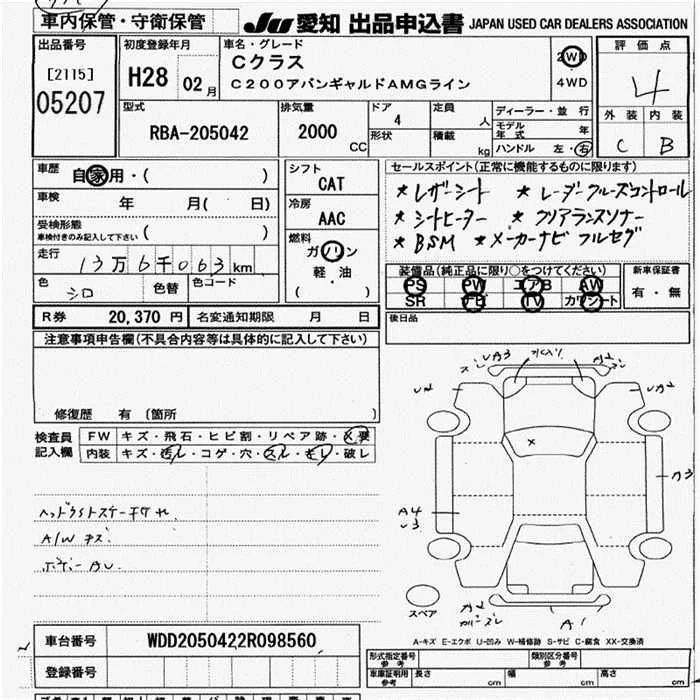 車内保管・守衛保管
JU 愛知 出品申込書 JAPAN USED CAR DEALERS ASSOCIATION
出品番号
[2115]
05207
初度登録年月
H28 02月
車名・グレード
Cクラス
C200アバンギャルドAMGライン
2WD
4WD
評価点
4
外装 内装
C B
型式
RBA-205042
排気量
2000
CC
ドア
4
形状
定員
人
積載
kg
ディーラー・並行
モデル年式 年
ハンドル 左・右
車歴
自家用・( )
車検 年 月( 日)
受検形態
車検付きのみ記入して下さい ( )
走行
13万6千063km
色 シロ 色替 色コード
シフト
CAT
冷房
AAC
燃料
ガソリン
軽・油
( )
セールスポイント(正常に機能するものに限ります)
★レザーシート ★レーダークルーズコントロール
★シートヒーター ★クリアランスソナー
★BSM ★メーカーナビ フルセグ
装備品(純正品に限り○をつけてください)
PS PW エアB AW
SR ナビ TV カワシート
新車保証書
有・無
R券 20,370円 名変通知期限 月 日
後日品
注意事項申告欄(不具合内容等は具体的に記入して下さい)
修復歴 有 〔箇所 〕
検査員記入欄
FW キズ・飛石・ヒビ割・リペア跡・X要
内装 キズ・汚レ・コゲ・穴・スレ・破レ
A/W キズ
UA3
A2
U2
UA2
A3
A4
U3
A2
A1
スペア
A-キズ E-エクボ U-凹み W-補修跡 S-サビ C-腐食 XX-交換済
車台番号 WDD2050422R098560
登録番号
形式指定番号 参考
類別区分番号 参考
車庫証明用 参考 長さ cm 幅 cm 高さ cm